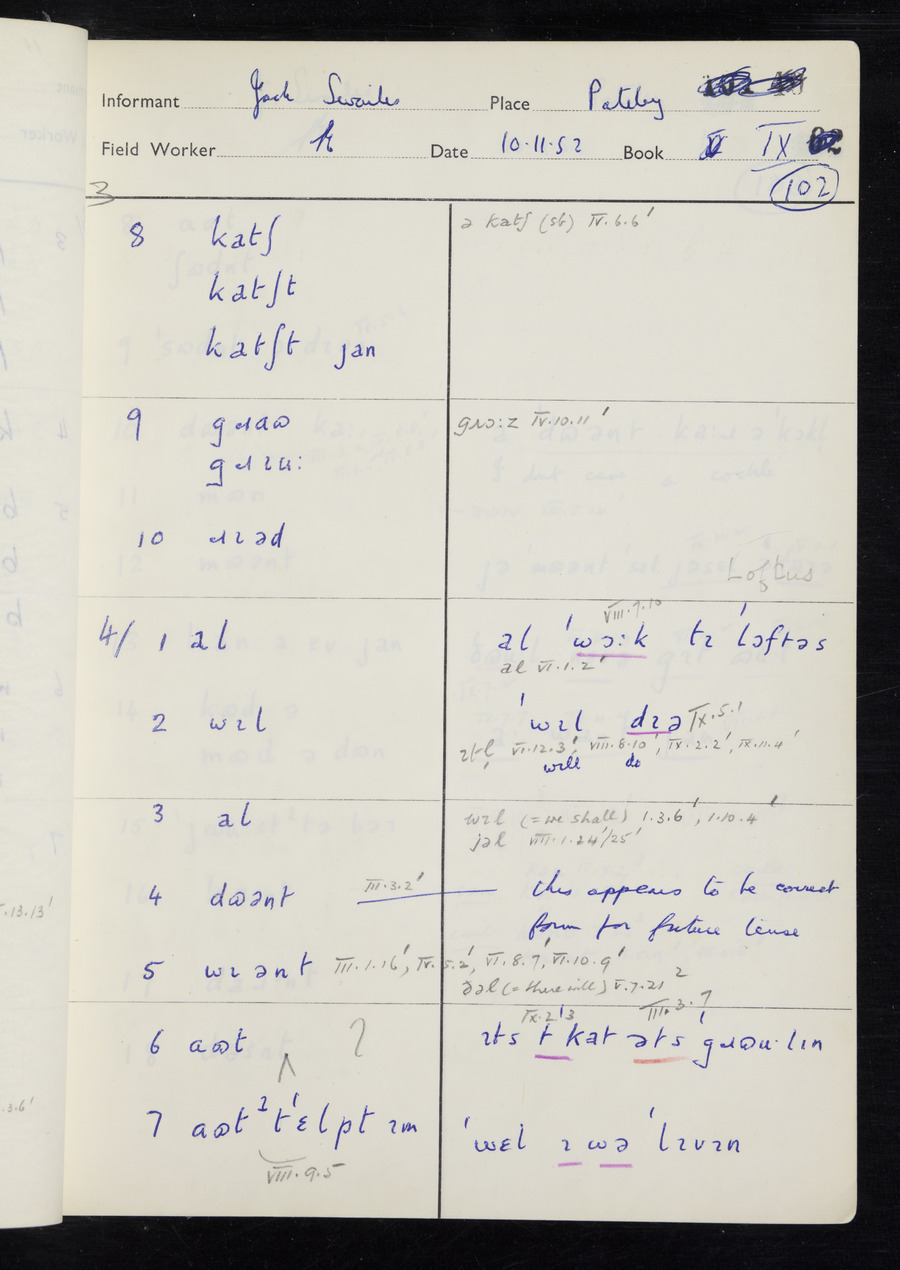 Informant Jack Swailes Place Pateley
Field Worker Date 10.11.52 Book IX
102
3
8 katʃ ə katʃ (sb) IV.6.6'
katʃt
katʃt jan
9 gɹaʊ gɹɔ:z IV.10.11'
gɹɪu:
10 ɹɪəd
Loftus
VIII.7.10
4/ 1 al al 'wɔ:k tɪ 'lɔftəs
al VI.1.2'
2 wɪl 'wɪl dɪə IX.5.1
VI.12.3', VIII.8.10', IX.2.2', IX.11.4'
will do
3 al wɪl (= we shall) 1.3.6', 1.10.4'
jəl VIII.1.24'/25'
4 dʊənt III.3.2' this appears to be correct
form for future tense
5 wɪənt III.1.16', IV.5.2', VI.8.7, VI.10.9'
ðəl (= there will) V.7.21
IX.2'3 III.3.7
6 aʊt ? ɪts t kat əts 'gɹaʊu·lɪn
7 aʊt t'ɛlpt ɪm 'wɛl ɪ wə 'lɪvɪn
VIII.9.5